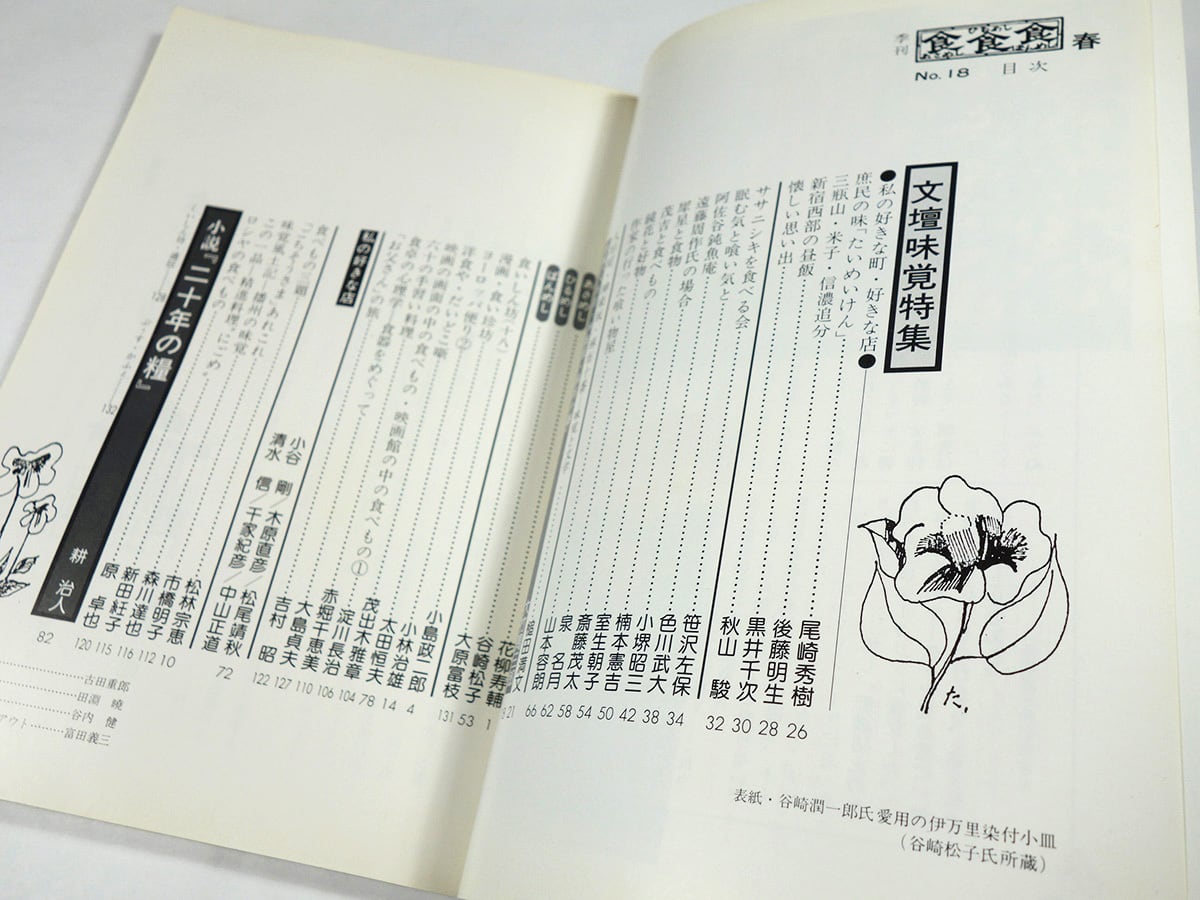 季刊
食食食
あさめし
ひるめし
ばんめし
春
No.18 目次
文壇味覚特集
●私の好きな町・好きな店●
庶民の味「たいめいけん」……尾崎秀樹 26
三瓶山・米子・信濃追分……後藤明生 28
新宿西部の昼飯……黒井千次 30
懐しい思い出……秋山 駿 32
ササニシキを食べる会……笹沢左保 34
眠む気と喰い気と……色川武大 38
阿佐谷鈍魚庵……小堺昭三 42
遠藤周作氏の場合……楠本憲吉 50
犀星と食物……室生朝子 54
茂吉と食べもの……斎藤茂太 58
鏡花と好物……泉 名月 62
山本容朗 66
21
あさめし
ひるめし
ばんめし
花柳寿輔 1
食いしん坊(十八)……谷崎松子 53
大原富枝 131
漫画・食い珍坊……小島政二郎 4
ヨーロッパ便り②……小林治雄 14
洋食や・だいどこ噺……太田恒夫 78
映画の画面の中の食べもの・映画館の中の食べもの①……茂出木雅章 104
六十の手習い料理……淀川長治 106
食卓の心理学……赤堀千恵美 110
「お父さん」の旅——食器をめぐって……大島貞夫 127
吉村 昭 122
私の好きな店
小谷 剛
木原直彦/松尾靖秋
清水 信/千家紀彦/中山正道 72
食べもの二題……松林宗恵 10
「ごちそうさま」あれこれ……市橋明子 112
味覚風土記——播州の味覚……森川達也 116
この一品——精進料理……新田紝子 115
ロシヤの食べもの……原 卓也 120
小説『二十年の糧』
耕 治人
82
128
132
古田重郎
田淵 暁
谷内 健
アウト……富田義三
た,
表紙・谷崎潤一郎氏愛用の伊万里染付小皿
(谷崎松子氏所蔵)